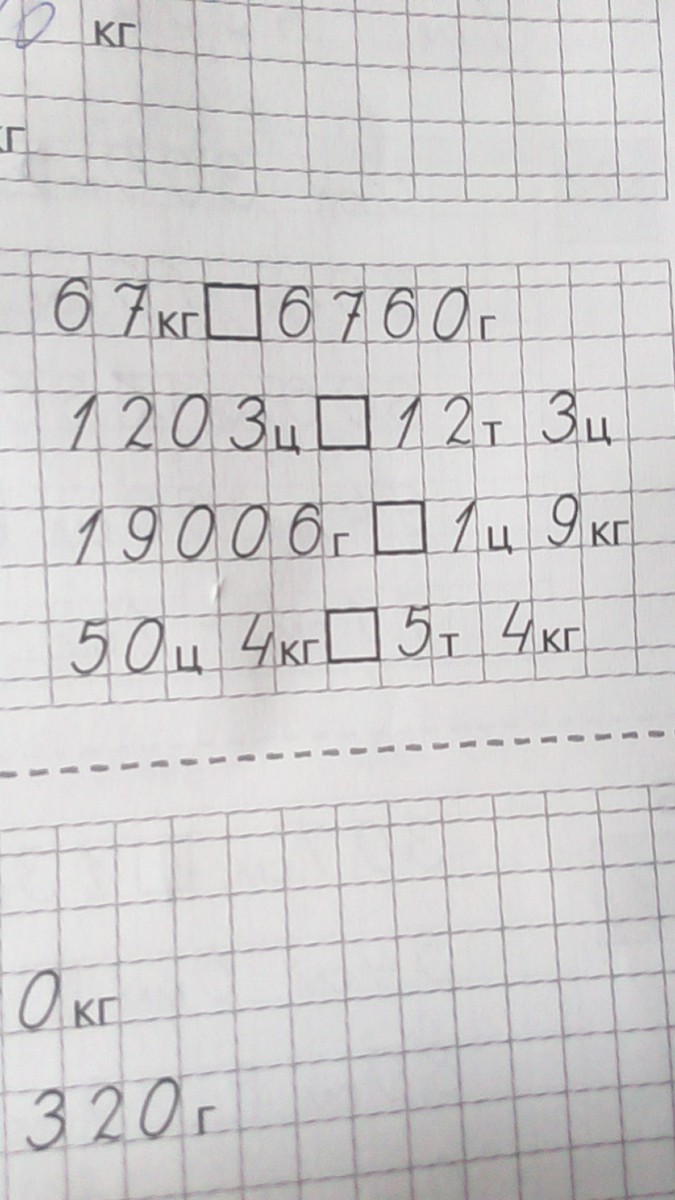 кг
67кг□6760г
1203ц□12т 3ц
19006г□1ц 9кг
50ц 4кг□5т 4кг
0кг
320г